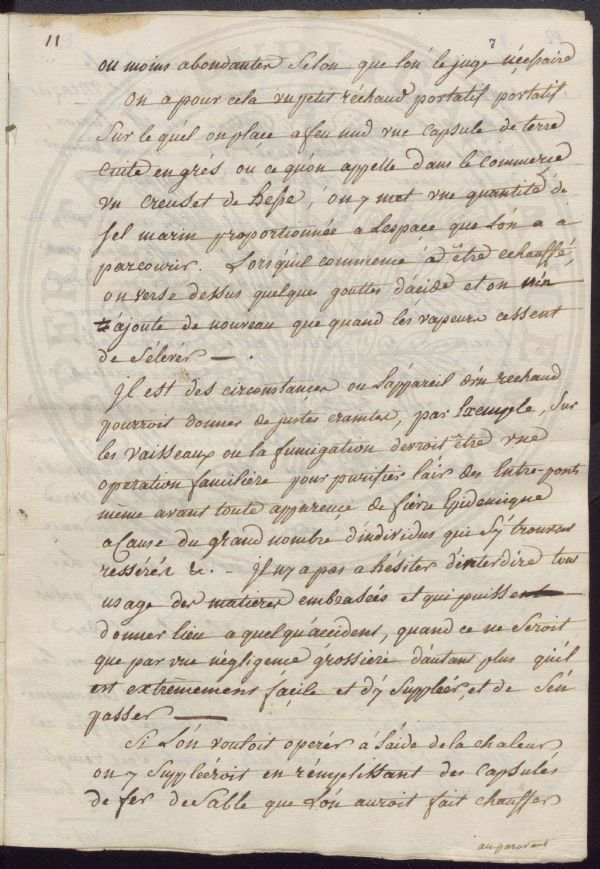 11
7
ou moins abondantes Selon que lon le juge nécessaire
On a pour cela un petit réchaud portatif portatif
Sur le quel on place a feu nud une capsule de terre
cuite en grés ou ce qu'on appelle dans le Commerce
un creuset de hesse, on y met une quantité de
sel marin proportionnée a Lespace que L'on a a
parcourir. Lorsqu'il commence a être echauffé,
on verse dessus quelque gouttes d'acide et on n'en
r'ajoute de nouveau que quand les vapeurs cessent
de S'élever — .
Il est des circonstances ou L'appareil d'un rechaud
pourroit donner de justes craintes, par Exemple, Sur
les Vaisseaux ou la fumigation devroit être une
operation familière pour purifier l'air des Entre-ponts
même avant toute apparence de fievre Epidemique
a Cause du grand nombre d'individus qui S'y trouvent
ressérés &. – Il n'y a pas a hésiter d'interdire tous
usage des matieres embrasées et qui puissent
donner lieu a quelqu'accident, quand ce ne Seroit
que par une négligence grossiere d'autant plus qu'il
est extrêmement façile et d'y Suppléer, et de S'en
passer —
Si L'on vouloit opérer à L'aide de la chaleur
on y Suppléeroit en rémplissant des capsules
de fer de Sable que L'on auroit fait chauffer
auparavant